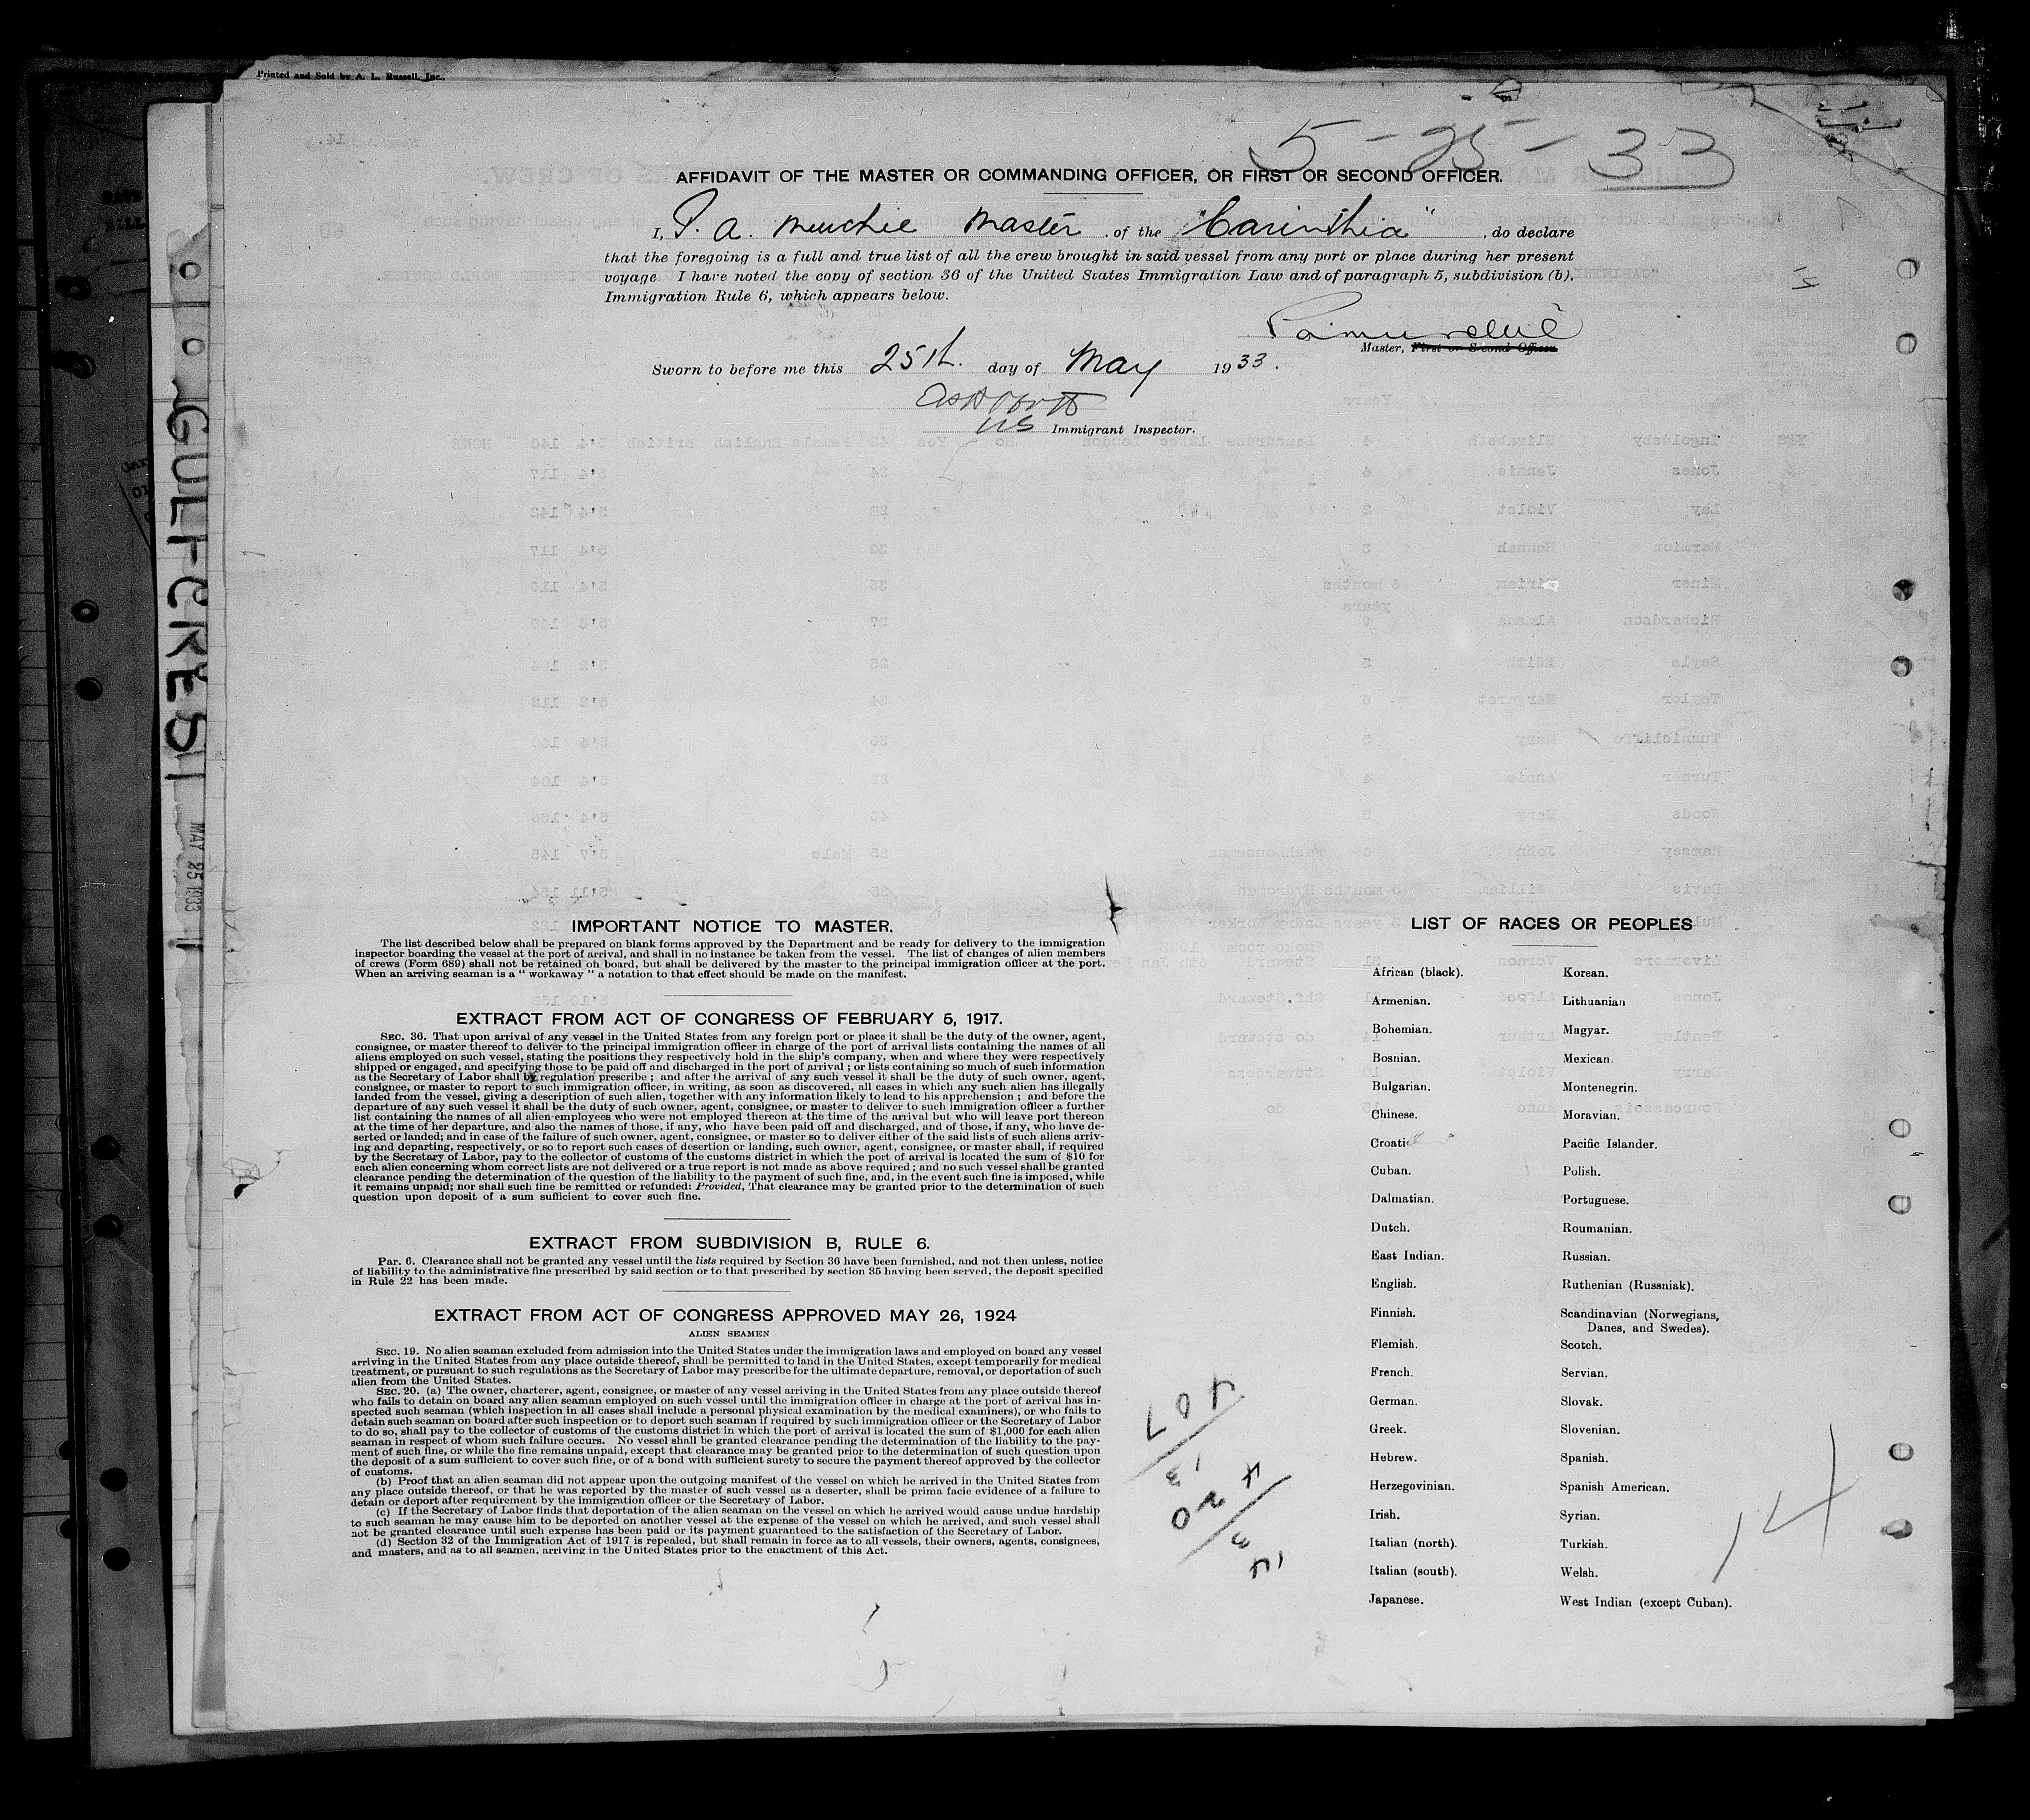 Printed and Sold by A. L. Russell, Inc.
5-25-33
AFFIDAVIT OF THE MASTER OR COMMANDING OFFICER, OR FIRST OR SECOND OFFICER.
I, P. A. Murchie Master, of the "Carinthia", do declare
that the foregoing is a full and true list of all the crew brought in said vessel from any port or place during her present
voyage. I have noted the copy of section 36 of the United States Immigration Law and of paragraph 5, subdivision (b),
Immigration Rule 6, which appears below.
Master, First or Second Officer.
Sworn to before me this 25th day of May 1933.
US Immigrant Inspector.
GULFCREST
MAY 25 1933
IMPORTANT NOTICE TO MASTER.
The list described below shall be prepared on blank forms approved by the Department and be ready for delivery to the immigration
inspector boarding the vessel at the port of arrival, and shall in no instance be taken from the vessel. The list of changes of alien members
of crews (Form 689) shall not be retained on board, but shall be delivered by the master to the principal immigration officer at the port.
When an arriving seaman is a "workaway" a notation to that effect should be made on the manifest.
EXTRACT FROM ACT OF CONGRESS OF FEBRUARY 5, 1917.
SEC. 36. That upon arrival of any vessel in the United States from any foreign port or place it shall be the duty of the owner, agent,
consignee, or master thereof to deliver to the principal immigration officer in charge of the port of arrival lists containing the names of all
aliens employed on such vessel, stating the positions they respectively hold in the ship's company, when and where they were respectively
shipped or engaged, and specifying those to be paid off and discharged in the port of arrival; or lists containing so much of such information
as the Secretary of Labor shall by regulation prescribe; and after the arrival of any such vessel it shall be the duty of such owner, agent,
consignee, or master to report to such immigration officer, in writing, as soon as discovered, all cases in which any such alien has illegally
landed from the vessel, giving a description of such alien, together with any information likely to lead to his apprehension; and before the
departure of any such vessel it shall be the duty of such owner, agent, consignee, or master to deliver to such immigration officer a further
list containing the names of all alien employees who were not employed thereon at the time of the arrival but who will leave port thereon
at the time of her departure, and also the names of those, if any, who have been paid off and discharged, and of those, if any, who have de-
serted or landed; and in case of the failure of such owner, agent, consignee, or master so to deliver either of the said lists of such aliens arriv-
ing and departing, respectively, or so to report such cases of desertion or landing, such owner, agent, consignee, or master shall, if required
by the Secretary of Labor, pay to the collector of customs of the customs district in which the port of arrival is located the sum of $10 for
each alien concerning whom correct lists are not delivered or a true report is not made as above required; and no such vessel shall be granted
clearance pending the determination of the question of the liability to the payment of such fine, and, in the event such fine is imposed, while
it remains unpaid; nor shall such fine be remitted or refunded: Provided, That clearance may be granted prior to the determination of such
question upon deposit of a sum sufficient to cover such fine.
EXTRACT FROM SUBDIVISION B, RULE 6.
Par. 6. Clearance shall not be granted any vessel until the lists required by Section 36 have been furnished, and not then unless, notice
of liability to the administrative fine prescribed by said section or to that prescribed by section 35 having been served, the deposit specified
in Rule 22 has been made.
EXTRACT FROM ACT OF CONGRESS APPROVED MAY 26, 1924
ALIEN SEAMEN
SEC. 19. No alien seaman excluded from admission into the United States under the immigration laws and employed on board any vessel
arriving in the United States from any place outside thereof, shall be permitted to land in the United States, except temporarily for medical
treatment, or pursuant to such regulations as the Secretary of Labor may prescribe for the ultimate departure, removal, or deportation of such
alien from the United States.
SEC. 20. (a) The owner, charterer, agent, consignee, or master of any vessel arriving in the United States from any place outside thereof
who fails to detain on board any alien seaman employed on such vessel until the immigration officer in charge at the port of arrival has in-
spected such seaman (which inspection in all cases shall include a personal physical examination by the medical examiners), or who fails to
detain such seaman on board after such inspection or to deport such seaman if required by such immigration officer or the Secretary of Labor
to do so, shall pay to the collector of customs of the customs district in which the port of arrival is located the sum of $1,000 for each alien
seaman in respect of whom such failure occurs. No vessel shall be granted clearance pending the determination of the liability to the pay-
ment of such fine, or while the fine remains unpaid, except that clearance may be granted prior to the determination of such question upon
the deposit of a sum sufficient to cover such fine, or of a bond with sufficient surety to secure the payment thereof approved by the collector
of customs.
(b) Proof that an alien seaman did not appear upon the outgoing manifest of the vessel on which he arrived in the United States from
any place outside thereof, or that he was reported by the master of such vessel as a deserter, shall be prima facie evidence of a failure to
detain or deport after requirement by the immigration officer or the Secretary of Labor.
(c) If the Secretary of Labor finds that deportation of the alien seaman on the vessel on which he arrived would cause undue hardship
to such seaman he may cause him to be deported on another vessel at the expense of the vessel on which he arrived, and such vessel shall
not be granted clearance until such expense has been paid or its payment guaranteed to the satisfaction of the Secretary of Labor.
(d) Section 32 of the Immigration Act of 1917 is repealed, but shall remain in force as to all vessels, their owners, agents, consignees,
and masters, and as to all seamen, arriving in the United States prior to the enactment of this Act.
LIST OF RACES OR PEOPLES
African (black). Korean.
Armenian. Lithuanian
Bohemian. Magyar.
Bosnian. Mexican.
Bulgarian. Montenegrin.
Chinese. Moravian.
Croati Pacific Islander.
Cuban. Polish.
Dalmatian. Portuguese.
Dutch. Roumanian.
East Indian. Russian.
English. Ruthenian (Russniak).
Finnish. Scandinavian (Norwegians,
Danes, and Swedes).
Flemish. Scotch.
French. Servian.
German. Slovak.
Greek. Slovenian.
Hebrew. Spanish.
Herzegovinian. Spanish American.
Irish. Syrian.
Italian (north). Turkish.
Italian (south). Welsh.
Japanese. West Indian (except Cuban).
407
13
420
34
14